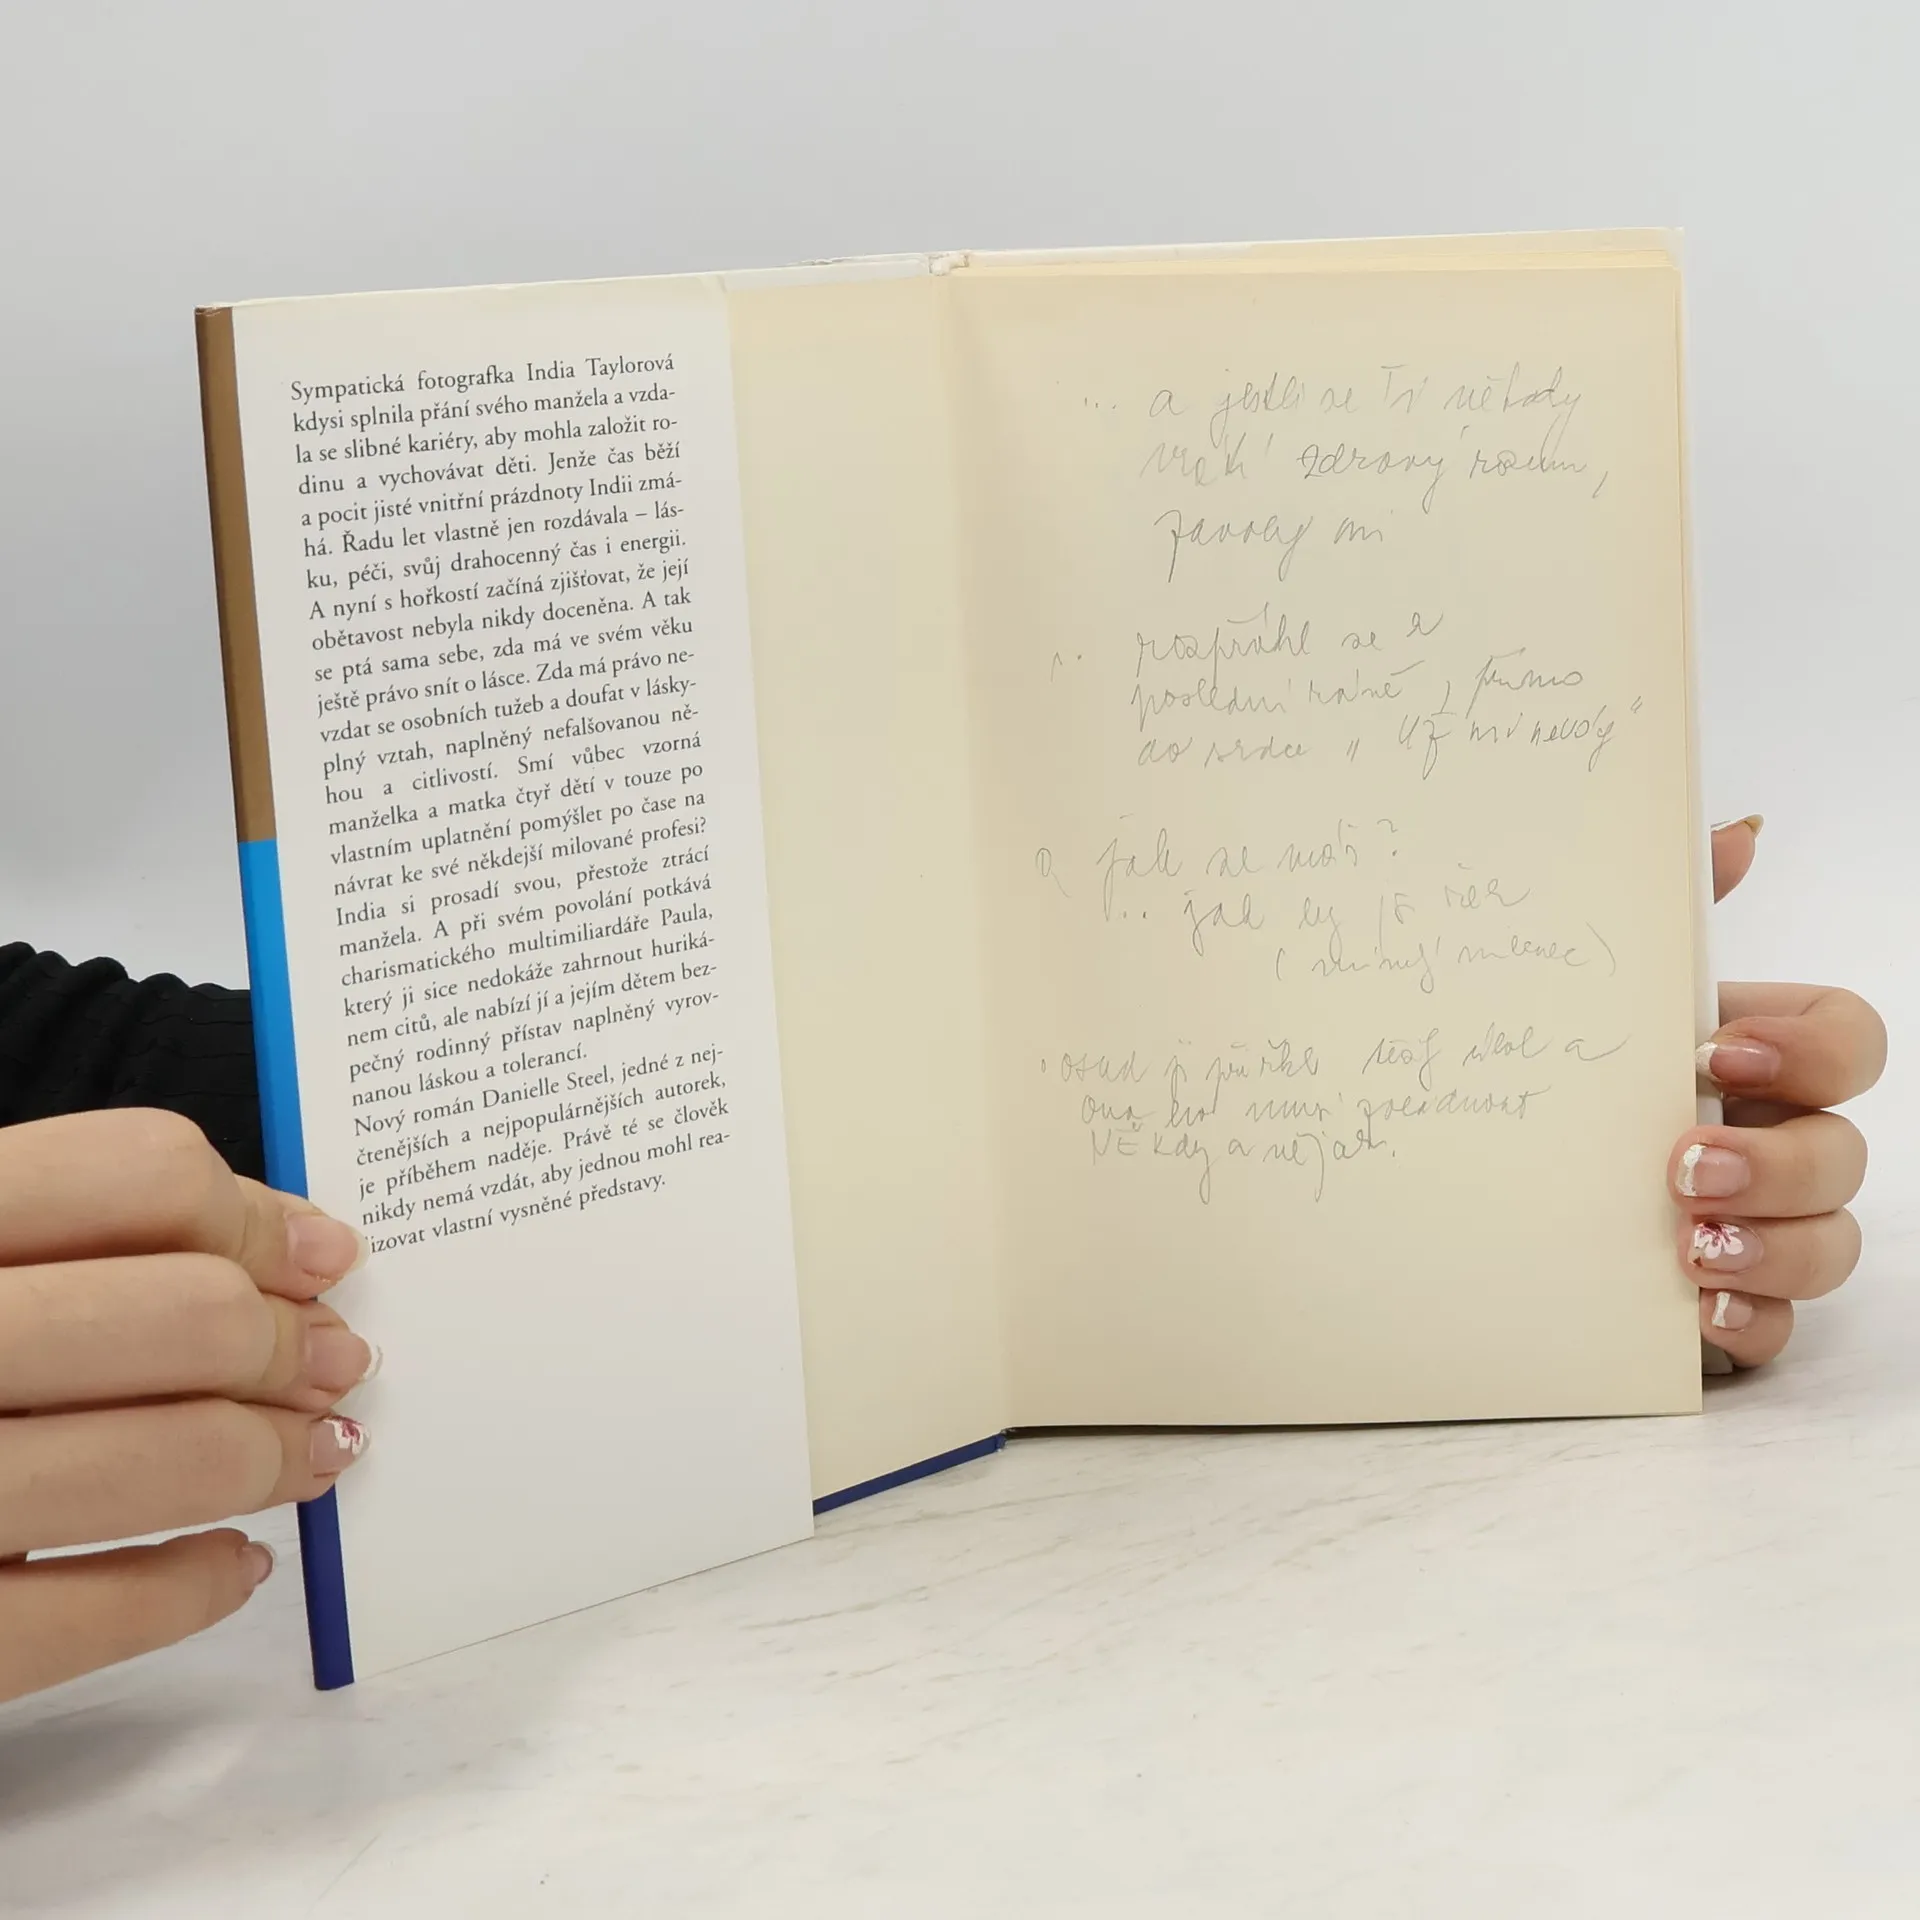 Sympatická fotografka India Taylorová
kdysi splnila přání svého manžela a vzda-
la se slibné kariéry, aby mohla založit ro-
dinu a vychovávat děti. Jenže čas běží
a pocit jisté vnitřní prázdnoty Indii zmá-
há. Řadu let vlastně jen rozdávala – lás-
ku, péči, svůj drahocenný čas i energii.
A nyní s hořkostí začíná zjišťovat, že její
obětavost nebyla nikdy doceněna. A tak
se ptá sama sebe, zda má ve svém věku
ještě právo snít o lásce. Zda má právo ne-
vzdat se osobních tužeb a doufat v lásky-
plný vztah, naplněný nefalšovanou ně-
hou a citlivostí. Smí vůbec vzorná
manželka a matka čtyř dětí v touze po
vlastním uplatnění pomýšlet po čase na
návrat ke své někdejší milované profesi?
India si prosadí svou, přestože ztrácí
manžela. A při svém povolání potkává
charismatického multimiliardáře Paula,
který ji sice nedokáže zahrnout huriká-
nem citů, ale nabízí jí a jejím dětem bez-
pečný rodinný přístav naplněný vyrov-
nanou láskou a tolerancí.
Nový román Danielle Steel, jedné z nej-
čtenějších a nejpopulárnějších autorek,
je příběhem naděje. Právě té se člověk
nikdy nemá vzdát, aby jednou mohl rea-
lizovat vlastní vysněné představy.
... a jestli se Ti někdy
vrátí zdravý rozum,
zavolej mi
rozpřáhl se a
poslední ráně, přímo
do srdce "Už mi nevolej"
jak se máš?
... jak by řek
( milenec)
osud jí úkol a
ona ho musí
NĚkdy a nějak.